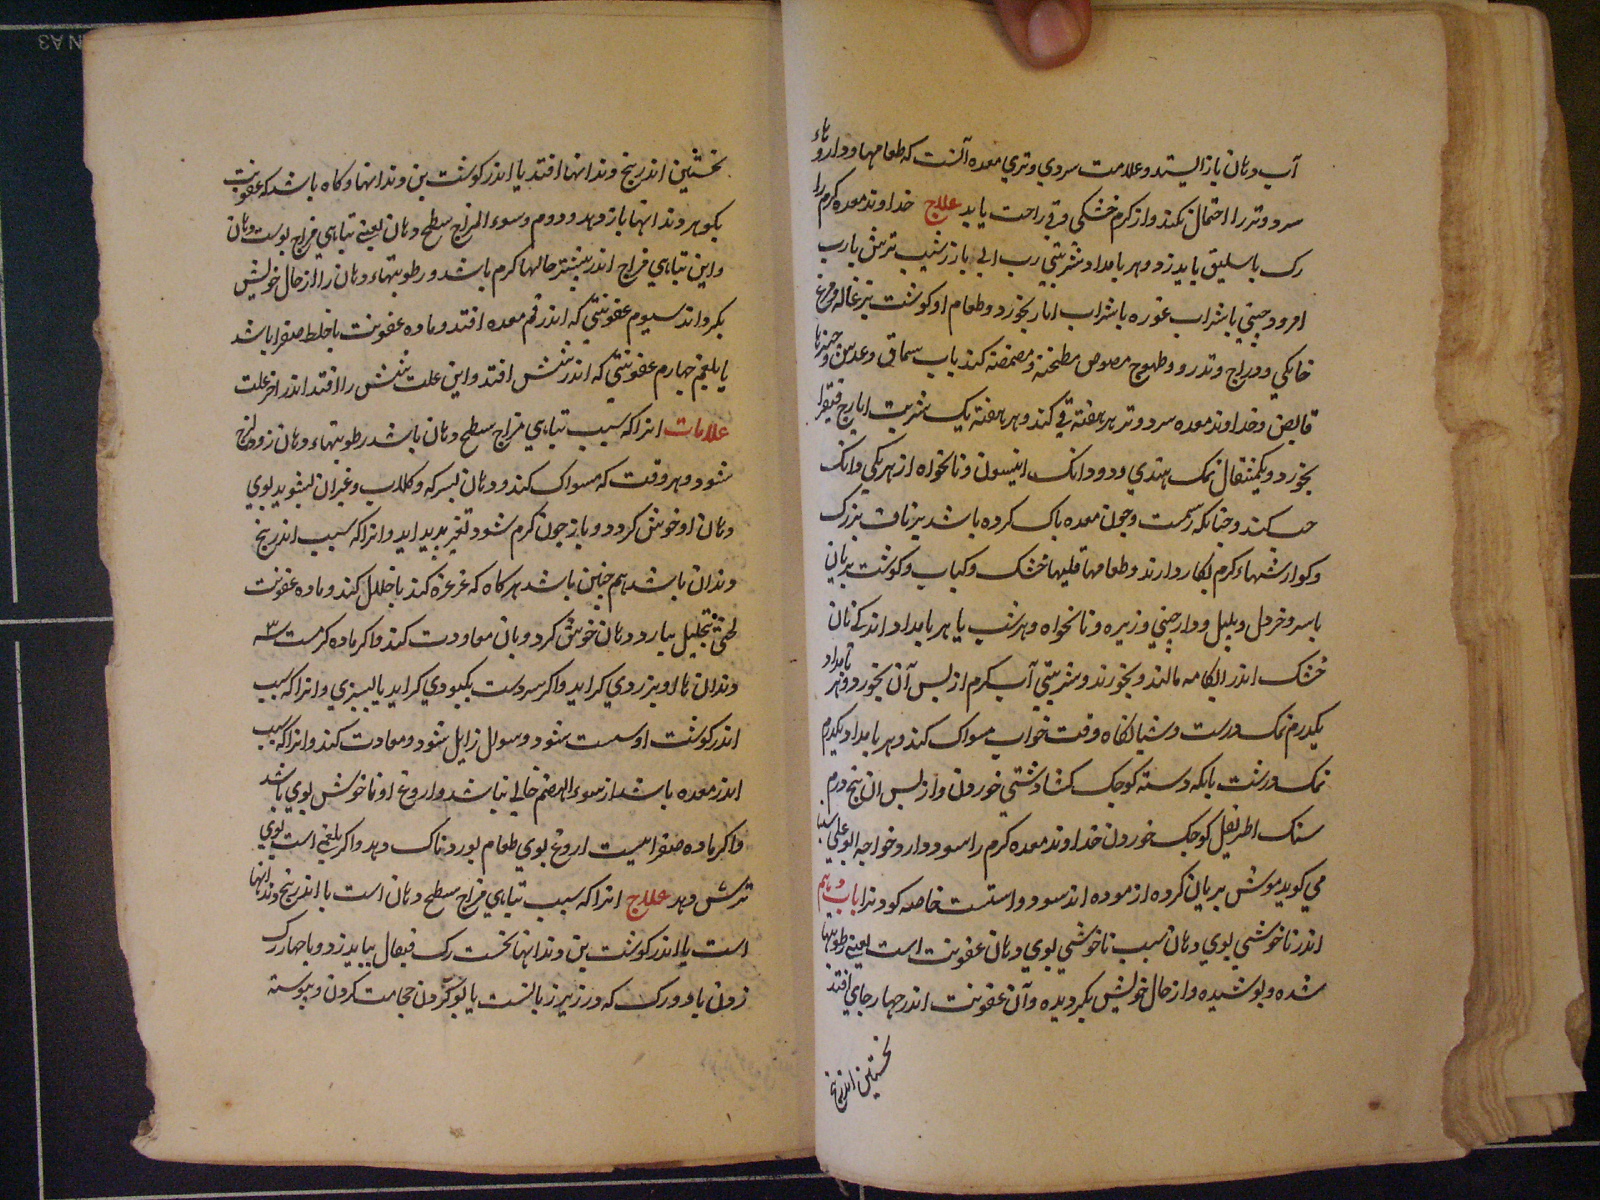 آب دهان باز ایستد و علامت سردي و تري معده آنست که طعامها و داروهاء
سرد و تر را احتمال نکند و از کرم خشکی و قي راحت یابد علاج خداوند معده کرم را
رک باسلیق باید زد و هر بامداد شربتي رب ابي باز رشیب ترش یا رب
امرود چیني یا شراب غوره یا شراب انار بخورد و طعام او کوشت بزغاله و مرغ
خانکي و دراج و تدرو و طیهوج مصوص مطجنه و مضمضه کند باب سماق و عدس و چیزها
قابض و خداوند معده سرد و تر هر هفته قي کند و هر هفته یک شربت ایارج فیقرا
بخورد و یکمثقال نمک هندي و دو دانک انیسون و نانخواه از هر یکي دانک
حب کند و چنانکه رسمست و چون معده پاک کرده باشد تریاق بزرک
و کوارشهاء کرم بکار دارند و طعامها قلیهاء خشک و کباب و کوشت بریان
با سیر و خردل و پلپل و دارچیني و زیره و نانخواه و هر شب یا هر بامداد اندکي نان
خشک اندر ابکامه مالند و بخورند و شربتي آب کرم از پس آن بخورد و هر بامداد
یکدرم نمک درست و شبانکاه وقت خواب مسواک کند و هر بامداد یکدرم
نمک درشت با یکه دسته کوچک کشاد شتي خوردن و از پس ان پنج درم
سنک اطریفل کوچک خوردن خداوند معده کرم را سود دارد خواجه ابو علي سینا
مي کوید موش بریان کرده ازموده اند سود داشتست خاصه کودکرا باب دهم
اندر ناخوشي بوي دهان سبب ناخوشي بوي دهان عفونت است یعني رطوبتها
شده و پوشیده و از حال خویش بکردیده و آن عفونت اندر چهار جاي افتد
نخستین اندر بیخ
نخستین اندر بیخ دندانها افتد یا اندر کوشت بن دندانها و کاه باشد که عفونت
بکوهر دندانها باز دهد و دوم و سوء المزاج سطح دهان یعني تباهي مزاج پوست دهان
و این تباهي مزاج اندر بیشتر حالها کرم باشد و رطوبتهاء دهان را از حال خویش
بکرداند سیوم عفونتي که اندر فم معده افتد و ماده عفونت یا خلط صفرا باشد
یا بلغم چهارم عفونتي که اندر شش افتد و این علت شش را افتد اندر اخر علت
علامات انرا که سبب تباهي مزاج سطح دهان باشد رطوبتهاء دهان زود لزج
شود و هر وقت که مسواک کند و دهان بسرکه و کلاب و غیر ان بشوید بوي
دهان او خوش کردد و باز چون کرم شود تغیر پدید اید و انرا که سبب اندر بیخ
دندان باشد هم چنین باشد هر کاه که غرغره کند یا خلال کند و ماده عفونت
لختي بتحلیل بیارد دهان خوش کردد و بان معاودت کند و اکر ماده کرمست
دندان ها او بزردي کراید و اکر سردست بکبودي کراید یا بسبزي و انرا که سبب
اندر کوشت او سست شود و سوال زایل شود و معاودت کند و انرا که سبب
اندر معده باشد از سوء الهضم خالي نباشد و اروغ او ناخوش بوي باشد
و اکر ماده صفرا هست اروغ بوي طعام بوردناک دهد و اکر بلغمي است بوي
ترش دهد علاج انرا که سبب تباهي مزاج سطح دهان است یا اندر بیخ دندانها
است یا اندر کوشت بن دندانها نخست رک قیفال بباید زد و یا چهار رک
زدن یا دو رک که در زیر زبانست یا بو کردن حجامت کردن و پیوسته